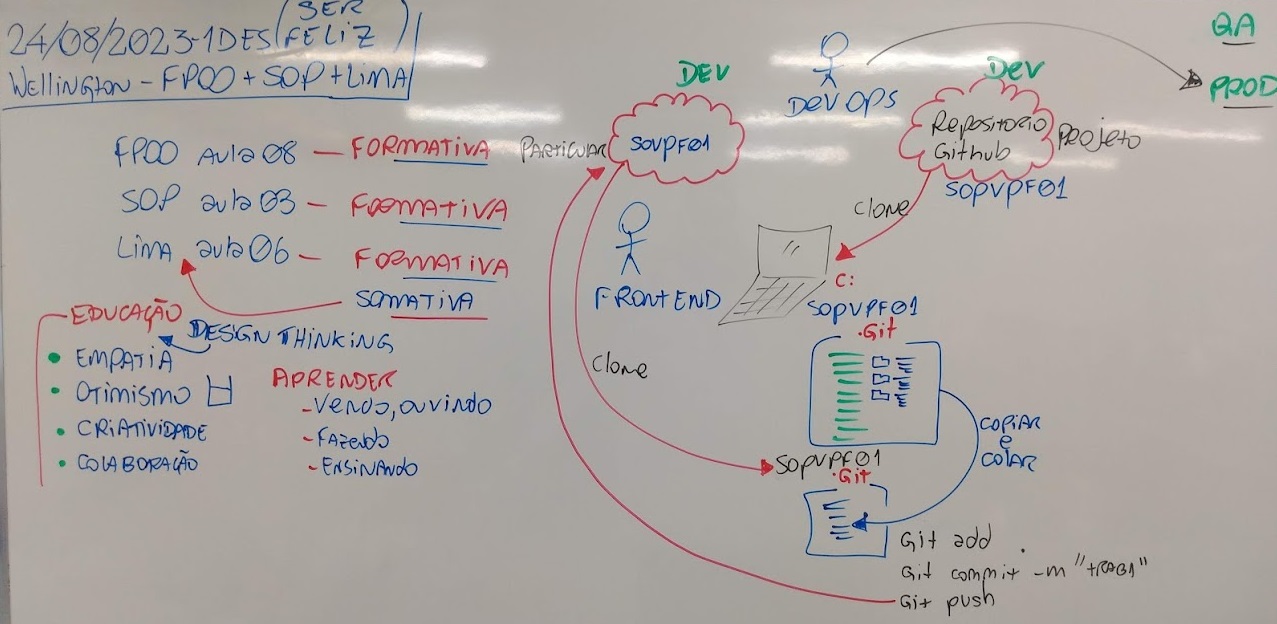 24/08/2023-1DES (SER FELIZ)
WELLINGTON - FPOO + SOP + LIMA
FPOO AULA 08 - FORMATIVA
SOP aula 03 - FORMATIVA
LIMA aula 06 - FORMATIVA
SOMATIVA
EDUCAÇÃO
DESIGN THINKING
• EMPATIA
• OTIMISMO
• CRIATIVIDADE
• COLABORAÇÃO
APRENDER
- VENDO, OUVINDO
- FAZENDO
- ENSINANDO
DEV
PARTICULAR
SOVPF01
FRONTEND
clone
DEVOPS
DEV
Repositorio
Github
PROJETO
SOPVPF01
QA
PROD
clone
C:
SOPVPF01
.Git
COPIAR
e
COLAR
SOPVPF01
.Git
Git add .
Git commit -m "
Git push